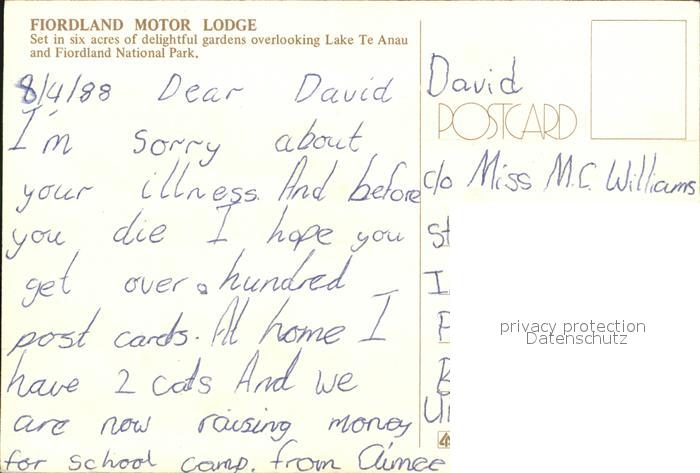 FIORDLAND MOTOR LODGE
Set in six acres of delightful gardens overlooking Lake Te Anau
and Fiordland National Park.
8/4/88 Dear David
I'm sorry about
your illness. And before
you die I hope you
get over a hundred
post cards. At home I
have 2 cats And we
are now raising money
for school camp. from Aimee
David
POSTCARD
c/o Miss M.C. Williams
st
privacy protection
Datenschutz